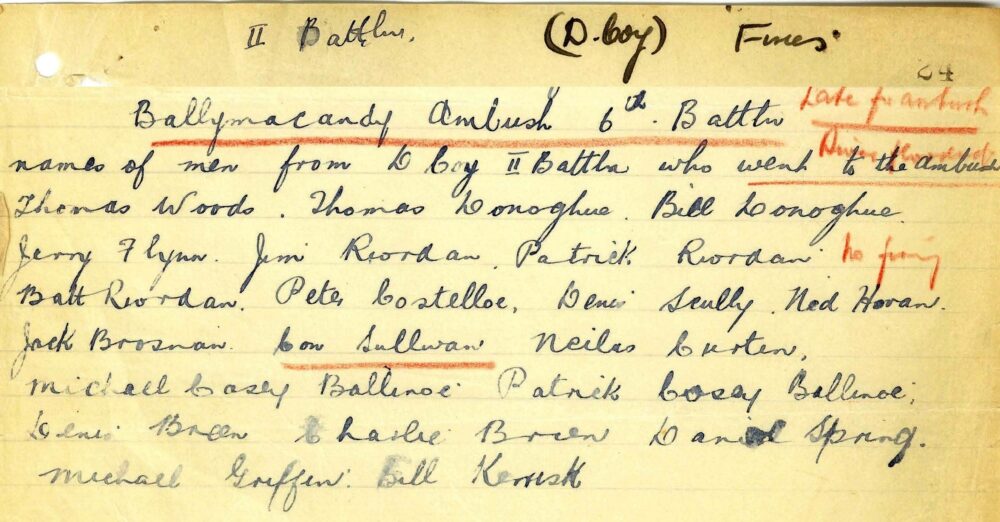 II Battln. (D. Coy) Fines
24
Ballymacandy Ambush 6th. Battln Late for ambush
names of men from D Coy II Battln who went to the Ambush
Thomas Woods. Thomas Donoghue. Bill Donoghue.
Jerry Flynn. Jim Riordan. Patrick Riordan No firing
Batt Riordan. Peter Costelloe. Denis Scully Ned Horan.
Jack Brosnan. Con Sullivan Neilus Curten,
Michael Casey Ballinoe Patrick Casey Ballinoe,
Denis Breen Charlie Brien Daniel Spring.
Michael Griffin. Bill Kerrisk